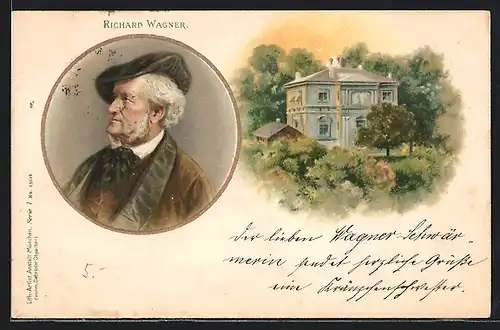 RICHARD WAGNER.
Der lieben Wagner Schwär-
merin sendet herzliche Grüße
eine Kränzchenschwester.
5.-
Lith.-Artist. Anstalt München, Serie 7 No.
(vorm. Gebrüder Obpacher)